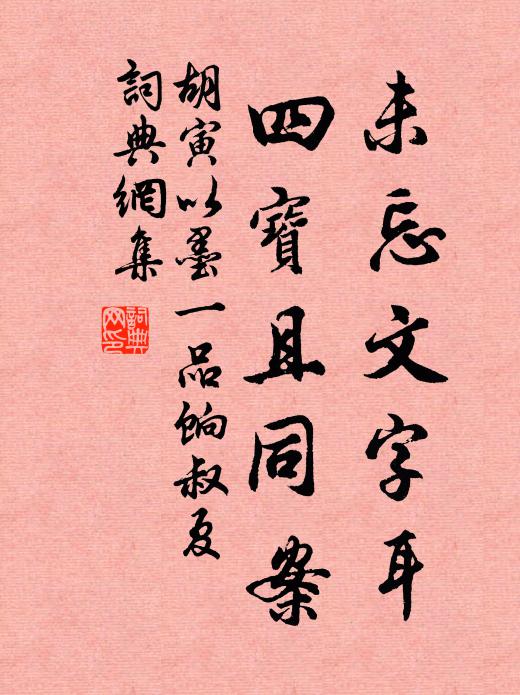 未忘文字耳
四寶且同案
胡寅以墨一品餉叔夏
詞典網集
詞典网印